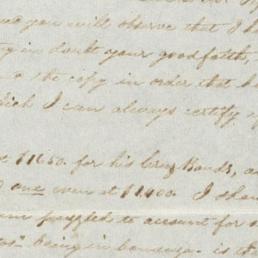 you will observe that I
in doubt your good faith,
the copy in order that
which I can always certify
at $1650. for his Croy Bonds,
one even at $1400. I
puzzled to account for
being in bondage. is